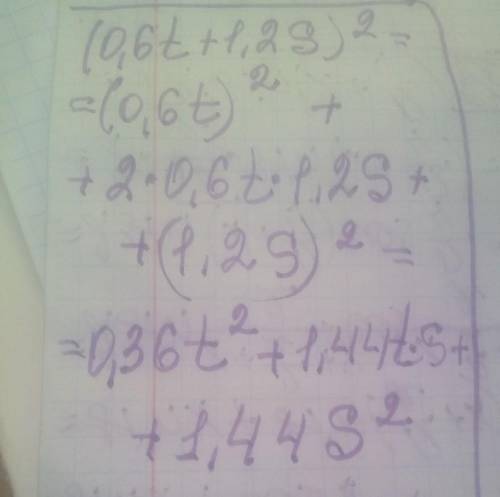 (0,6t+1,2S)²=
=(0,6t)² +
+2·0,6t·1,2S+
+(1,2S)²=
=0,36t²+1,44t·S+
+1,44S²